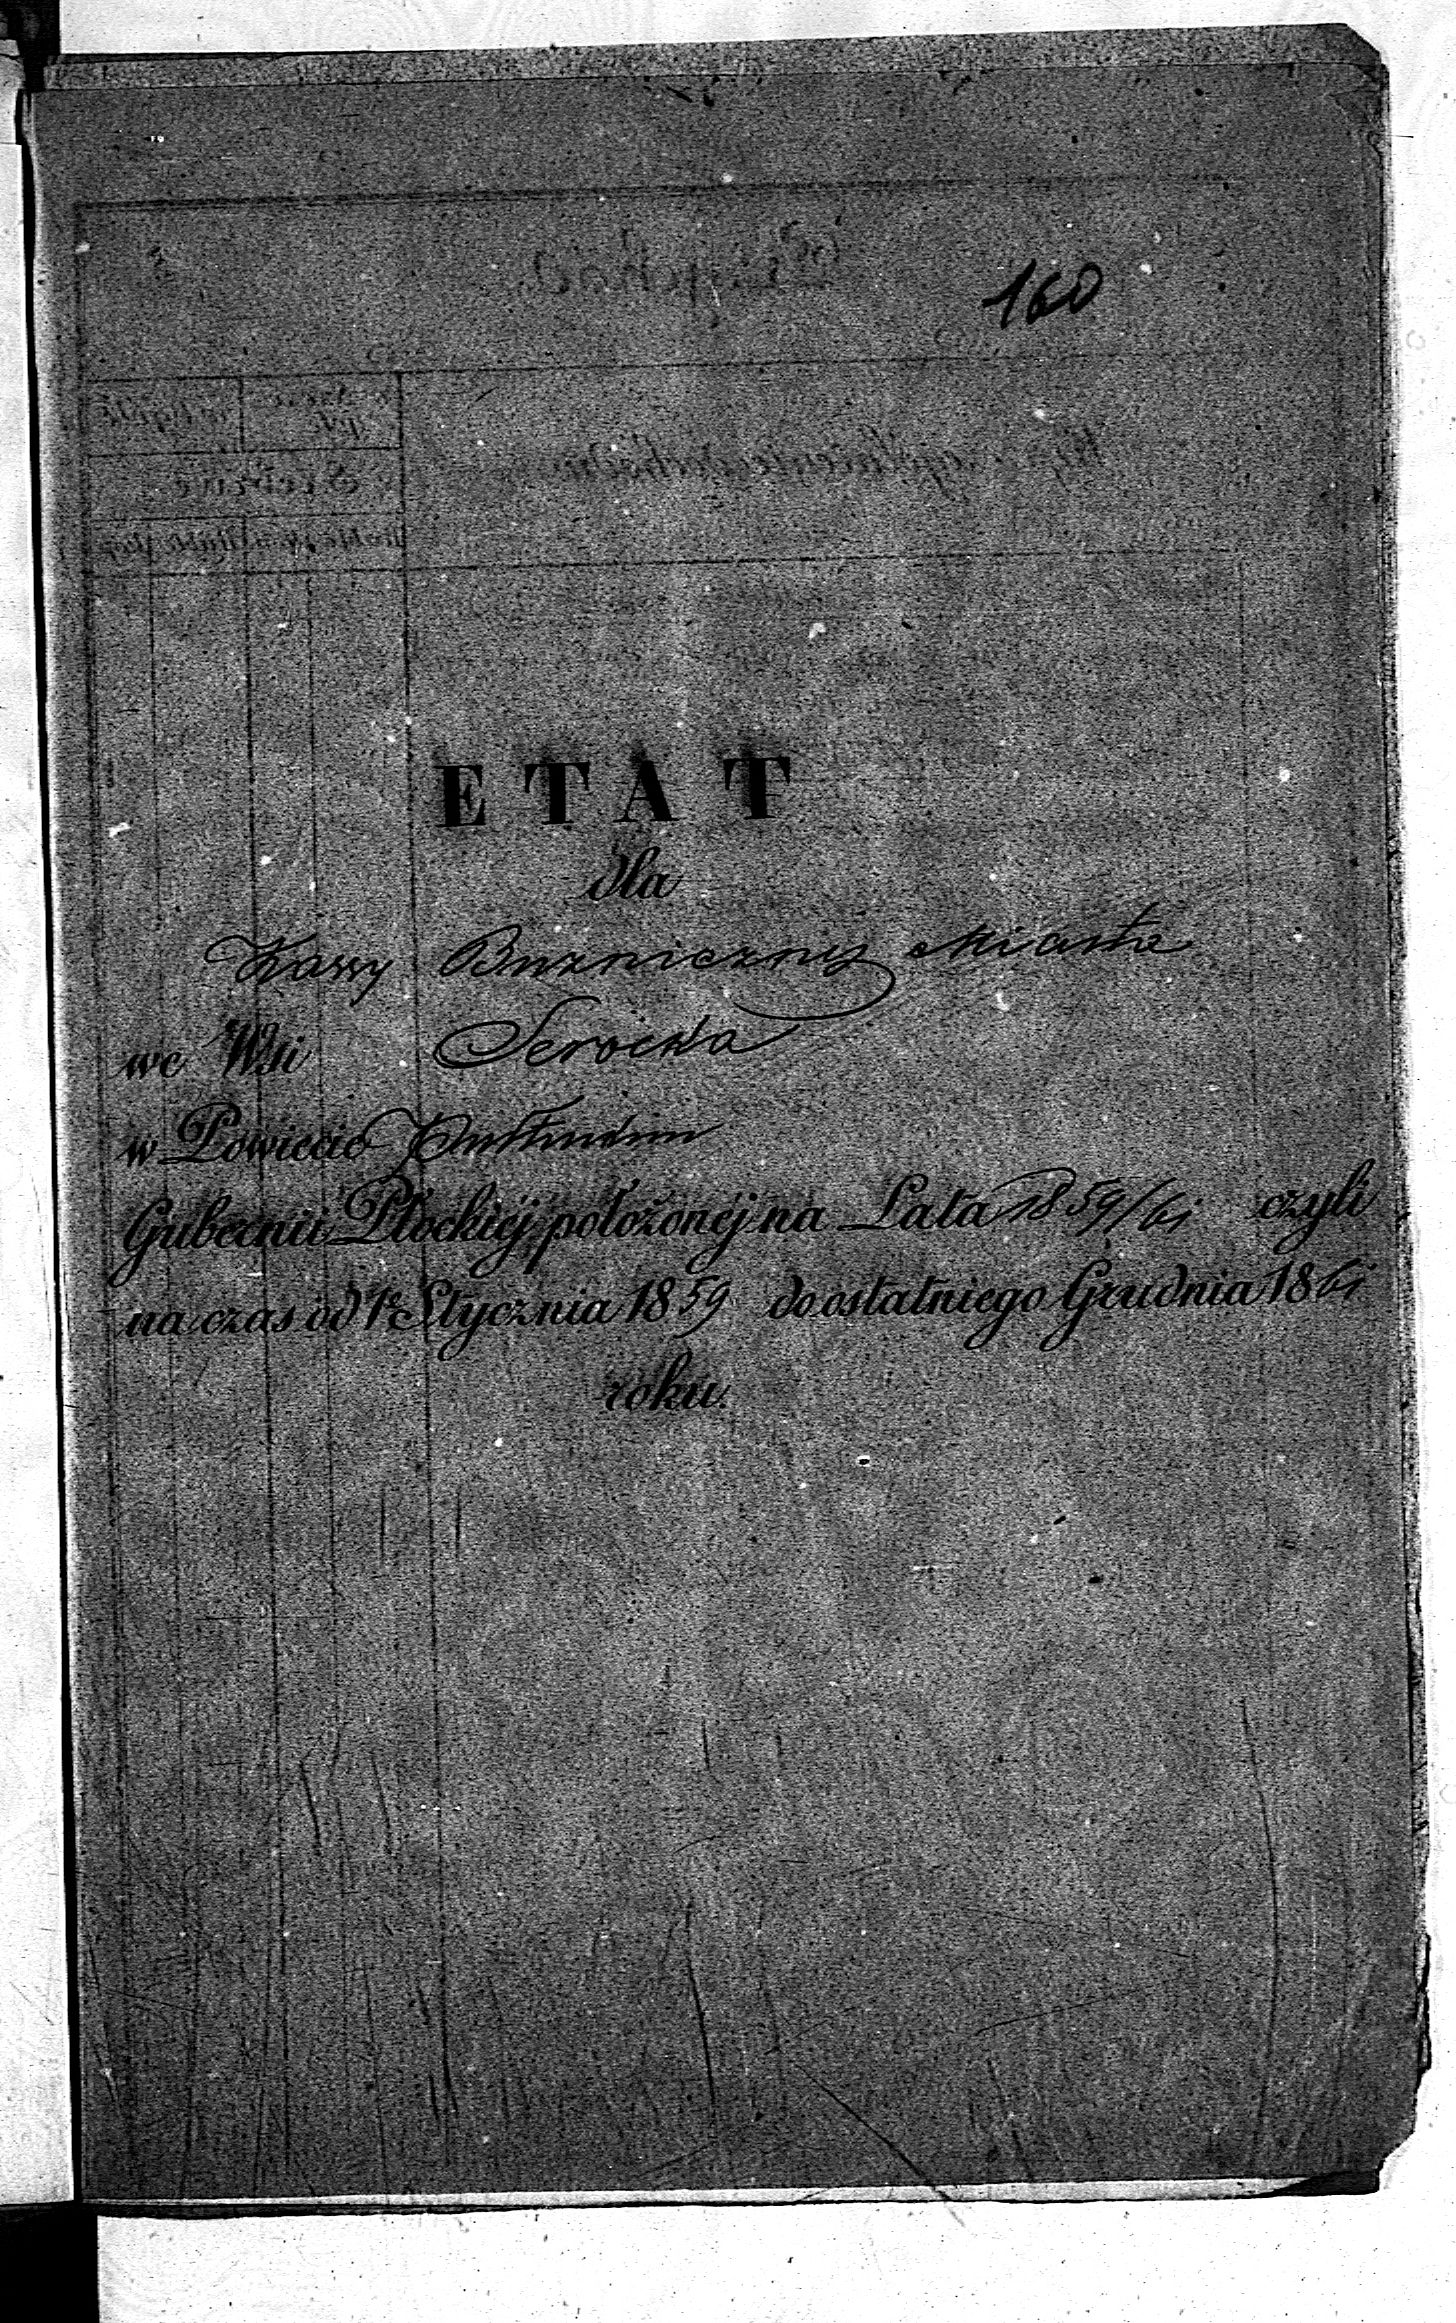 160
ETAT
dla
Kassy Bużnicznej Miasta
we Wsi Serocka
w Powiecie Pułtuskim
Gubernii Płockiéj położonéj na Lata 1859/61 czyli
na czas od 1º Stycznia 1859 do ostatniego Grudnia 1861
roku.